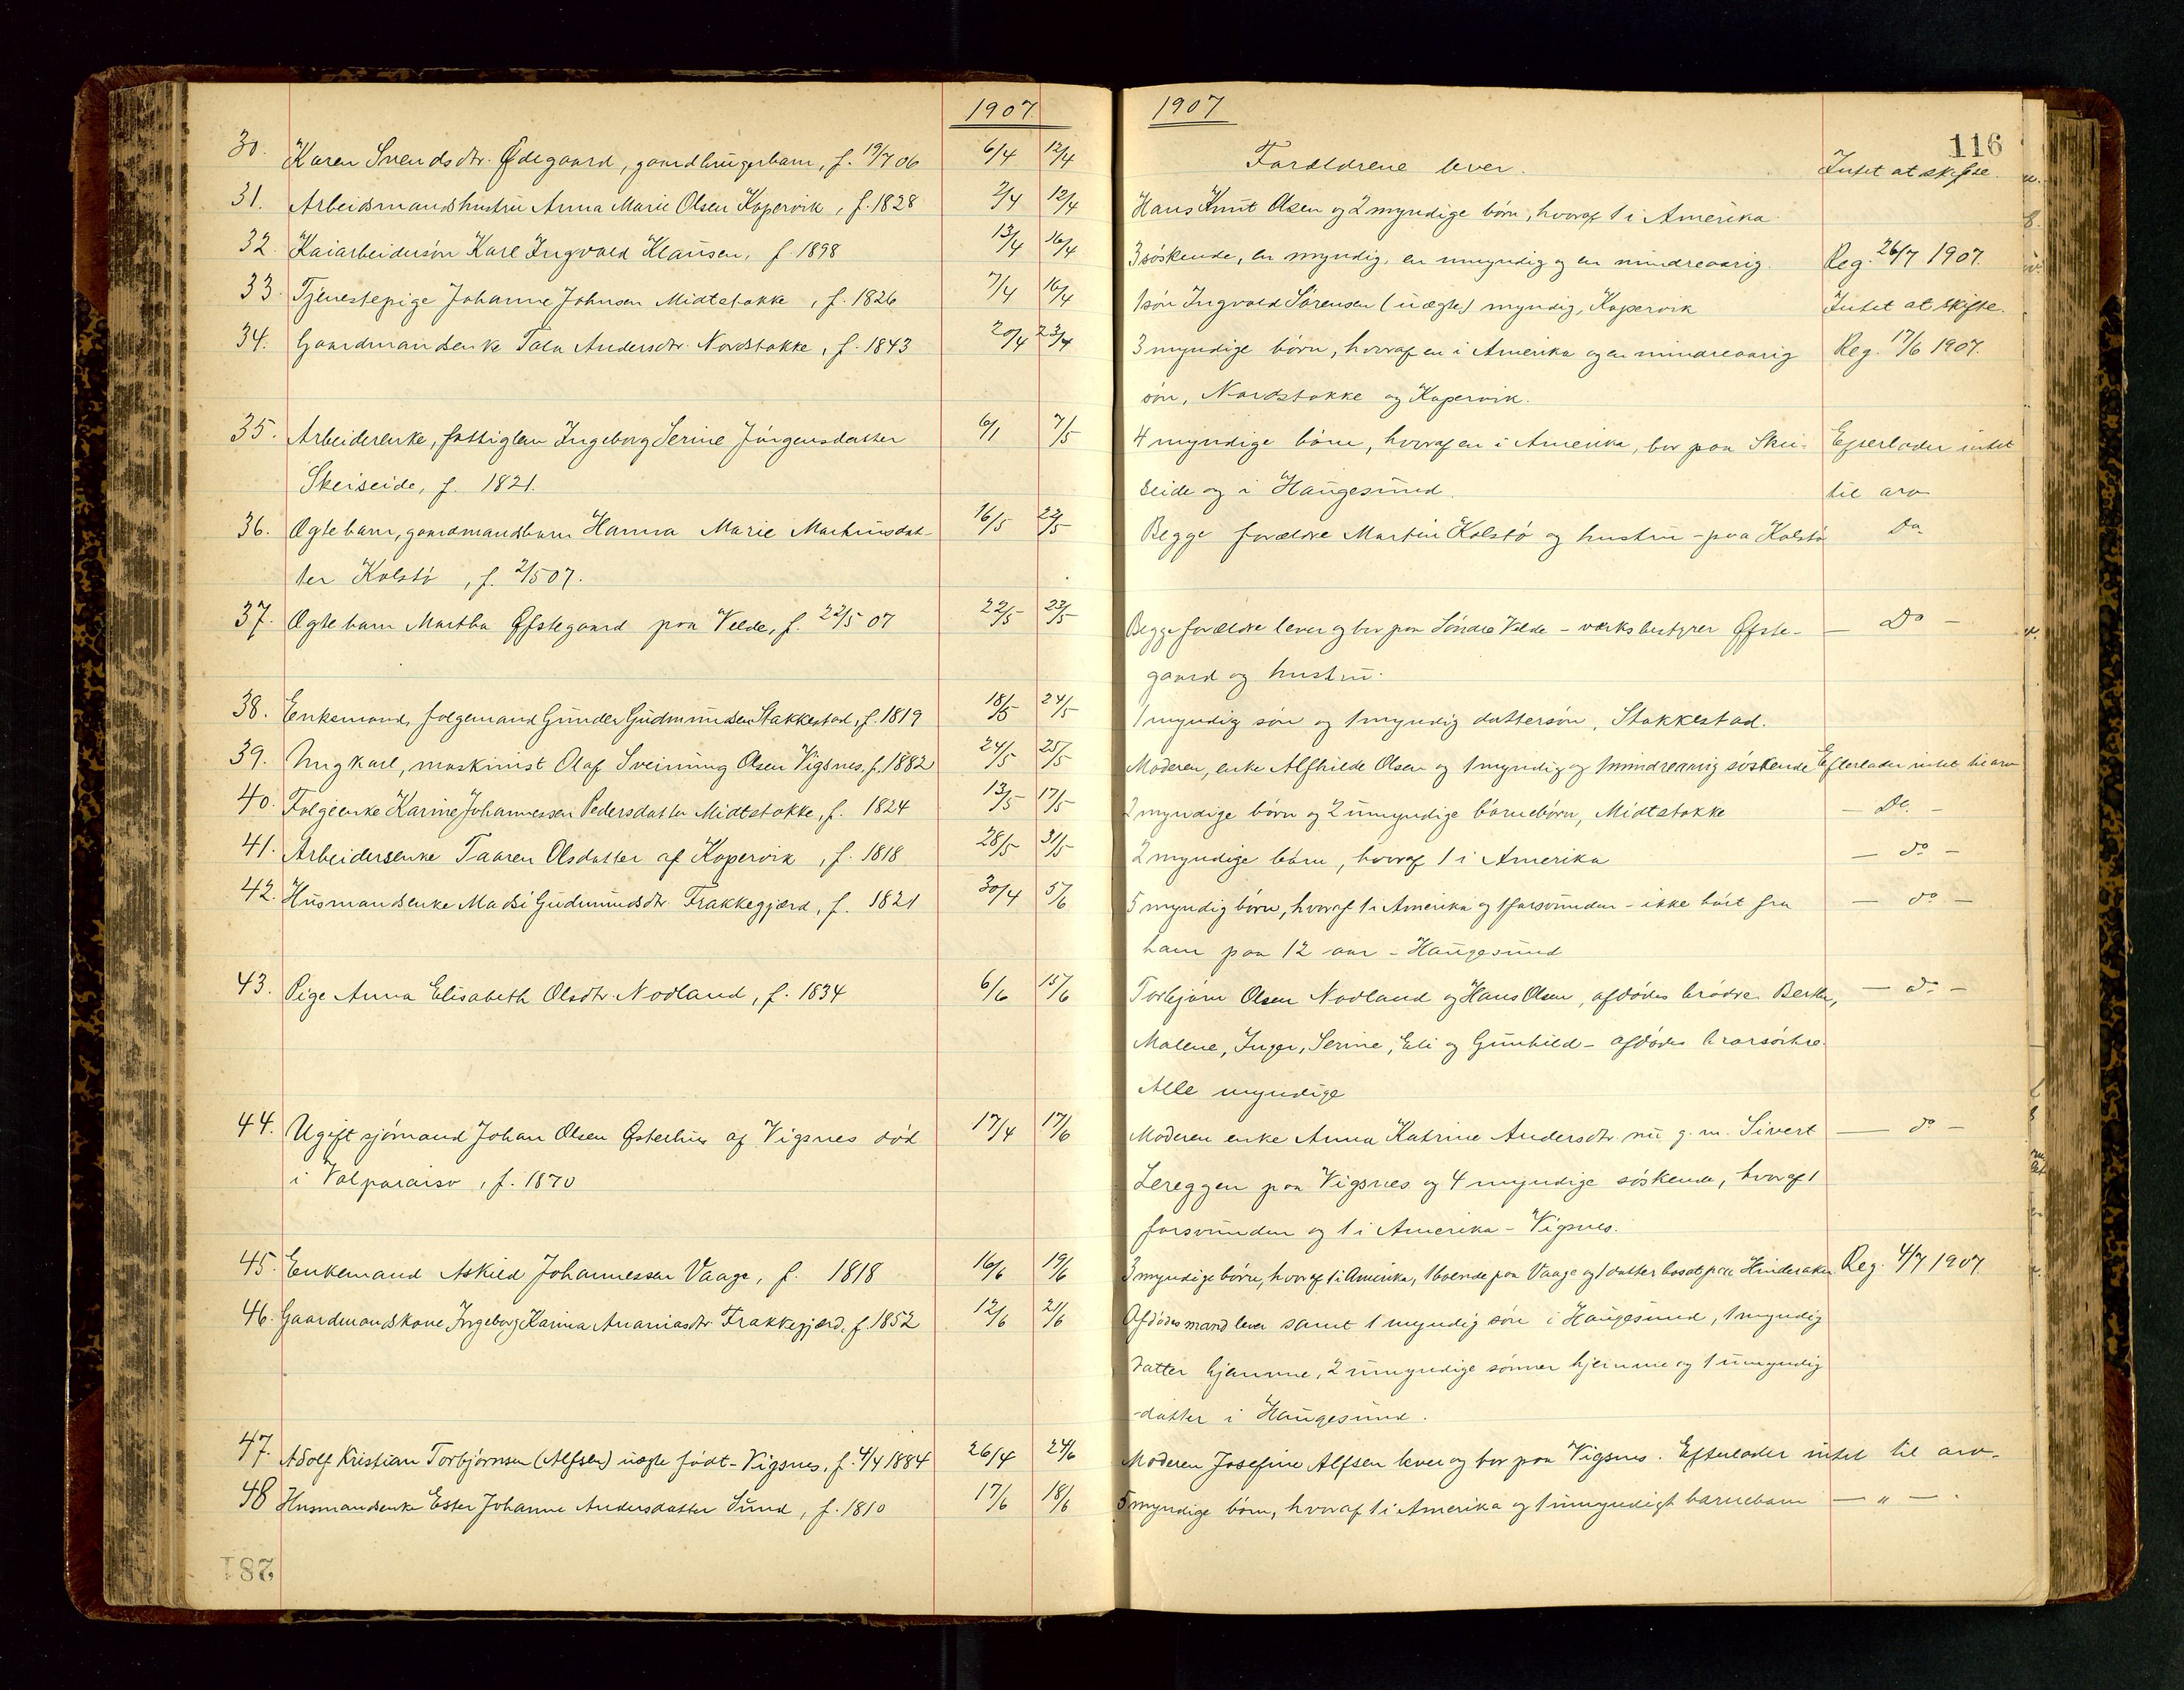 1907
30. Karen Svendsdtr. Ødegaard, gaardbrugerbarn, f. 19/7 06 6/4 12/4
31. Arbeidsmandshustru Anna Marie Olsen Kopervik, f. 1828 2/4 12/4
32. Kaiarbeidersøn Karl Ingvald Klausen, f 1898 13/4 16/4
33. Tjenestepige Johanne Johnsen Midtstokke, f. 1826 7/4 16/4
34. Gaardmandsenke Tala Andersdtr. Nordstokke, f. 1843 20/4 23/4
35. Arbeiderenke, fattiglem Ingeborg Serine Jörgensdatter 6/1 7/5
Skeiseide, f. 1821.
36. Ægtebarn, gaardmandsbarn Hanna Marie Martinusdat- 16/5 22/5
ter Kolstö, f. 2/5 07.
37. Ægtebarn Martha Øfstegaard paa Velde, f. 22/5 07 22/5 23/5
38. Enkemand, folgemand Gunder Gudmundsen Stakkestad, f. 1819 18/5 24/5
39. Ungkarl, maskinist Olaf Sveinung Olsen Vigsnes, f. 1882 24/5 25/5
40. Folgeenke Karine Johannessen Pedersdatter Midtstokke, f. 1824 13/5 17/5
41. Arbeidersenke Taaren Olsdatter af Kopervik, f. 1818 28/5 31/5
42. Husmandsenke Madsi Gudmundsdtr. Frakkegjerd, f. 1821 30/4 5/6
43. Pige Anna Elisabeth Olsdtr. Nodland, f. 1834 6/6 15/6
44. Ugift sjömand Johan Olsen Østerhus af Vigsnes död 17/4 17/6
i Valparaiso, f. 1870
45. Enkemand Askild Johannessen Vaage, f. 1818 16/6 19/6
46. Gaardmandskone Ingeborg Karina Ananiasdtr Frakkegjerd, f. 1852 12/6 21/6
47. Adolf Kristian Torbjörnsen (Alfsen) uægte födt - Vigsnes, f. 4/4 1884 26/4 24/6
48 Husmandsenke Ester Johanne Andersdatter Sund, f. 1810 17/6 18/6
281
1907
116
Forældrene lever. Intet at skifte.
Hans Knut Olsen og 2 myndige börn, hvoraf 1 i Amerika.
3 söskende, en myndig, en umyndig og en mindreaarig. Reg. 26/7 1907.
1 sön Ingvald Sörensen (uægte) myndig, Kopervik Intet at skifte.
3 myndige börn, hvoraf en i Amerika og en mindreaarig Reg. 17/6 1907.
sön, Nordstokke og Kopervik.
4 myndige börn, hvoraf en i Amerika, bor paa Skei- Efterlader intet
seide og i Haugesund. til arv
Begge forældre Martin Kolstö og hustru - paa Kolstö Do
Begge forældre lever og bor paa Söndre Velde - værksbestyrer Øfste- — Do —
gaard og hustru.
1 myndig sön og 1 myndig dattersön, Stakkestad.
Moderen, enke Alfhilde Olsen og 1 myndig og 1 mindreaarig söskende Efterlader intet til arv
2 myndige börn og 2 umyndige börnebörn, Midtstokke — Do. —
2 myndige börn, hvoraf 1 i Amerika — do —
5 myndig börn, hvoraf 1 i Amerika og 1 forsvunden - ikke hört fra — do —
ham paa 12 aar - Haugesund
Torbjörn Olsen Nodland og Hans Olsen, afdödes brödre. Berta, — do —
Malene, Inger, Serine, Eli og Gunhild - afdödes
Alle myndige
Moderen enke Anna Katrine Andersdtr. nu g. m. Sivert — do —
Lereggen paa Vigsnes og 4 myndige söskende, hvoraf 1
forsvunden og 1 i Amerika - Vigsnes.
3 myndige börn, hvoraf 1 i Amerika, 1 boende paa Vaage og 1 datter bosat paa Hinderaker. Reg. 4/7 1907
Afdödes mand lever samt 1 myndig sön i Haugesund, 1 myndig
datter hjemme, 2 umyndige sönner hjemme og 1 umyndig
datter i Haugesund.
Moderen Josefine Alfsen lever og bor paa Vigsnes. Efterlader intet til arv.
5 myndige börn, hvoraf 1 i Amerika og 1 umyndigt barnebarn — " —